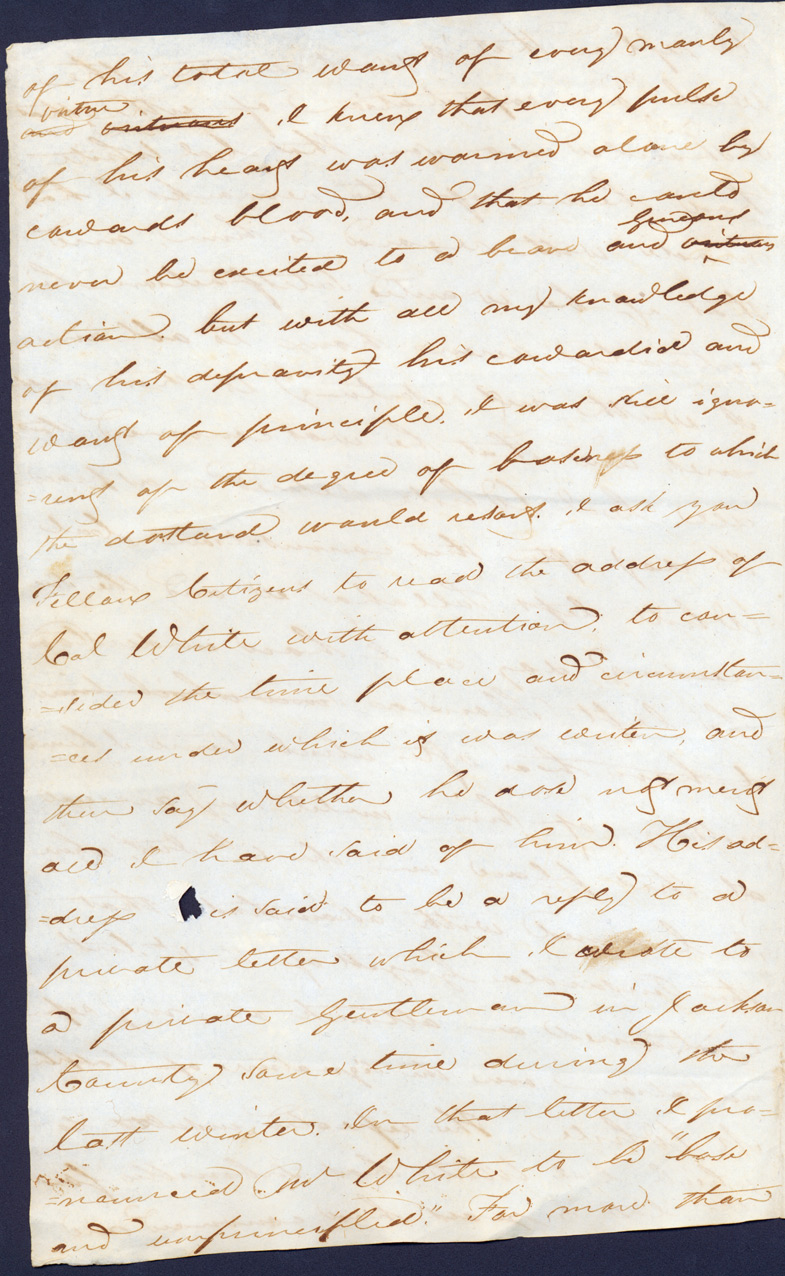 of his total want of every manly
virtue
and virtuous I knew that every pulse
of his heart was warmed alone by
cowards blood, and that he could
generous
never be excited to a brave and virtuous
action. but with all my knowledge
of his depravity his cowardice and
want of principle. I was still igno=
=rent of the degree of baseness to which
the dastard would resort. I ask you
Fellow Citizens to read the address of
Col White with attention, to con=
=sider the time place and circumstan=
=ces under which it was writen, and
then say whether he dose not merit
all I have said of him. His ad=
=dress is said to be a reply to a
private letter which I wrote to
a private Gentleman in Jackson
County some time during the
last winter. In that letter I pro=
=nounced Mr White to be "base
and unprincipled." For more than